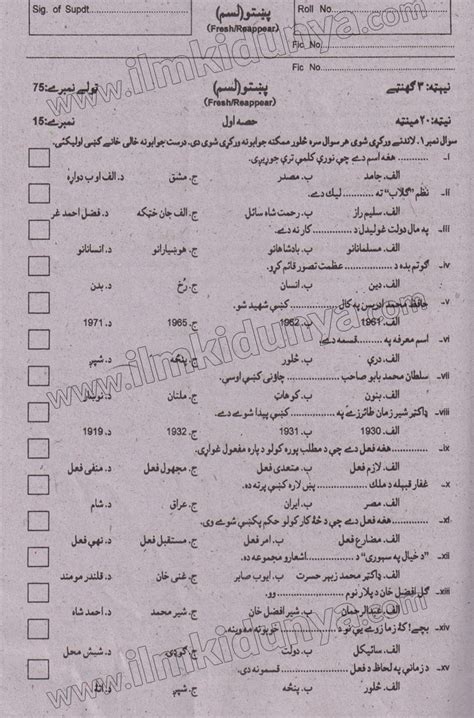 Sig. of Supdt.
پښتو(لسم)
(Fresh/Reappear)
Roll No.
Fic No.
Fic No.
نېټه: ۳ ګهنټے
پښتو(لسم)
(Fresh/Reappear)
ټولے نمبرے:75
نېټه: ۲۰ مینټه
حصه اول
نمبرے:15
سوال نمبر ۱. لاندنے ورکړې شوې هر سوال سره څلور ممکنه جوابونه ورکړې شوې دي. درست جوابونه خالي خانے کښې اولیکئي.
i- هغه اسم دے چې نورې کلمې ترې جوړېږي.
الف. جامد ب. مصدر ج. مشتق د. الف او ب دواړه
ii- نظم "ګلاب" ته لیک دے.
الف. سلیم راز ب. رحمت شاه سائل ج. الف جان خټکه د. فضل احمد غر
iii- په مال دولت غولېدل د کار نه دے.
الف. مسلمانانو ب. بادشاهانو ج. هوښیارانو د. انسانانو
iv- ګوتم بده د عظمت تصور قائم کړو.
الف. دین ب. انسان ج. رُخ د. بدن
v- حافظ محمد ادریس په کال کښې شهید شو.
الف. 1961 ب. 1962 ج. 1965 د. 1971
vi- اسم معرفه په قسمه دے.
الف. درې ب. څلور ج. پنځه د. شپږ
vii- سلطان محمد بابو صاحب چاؤنۍ کښې اوسي.
الف. بنون ب. کوهاټ ج. ملتان د. نوښار
viii- ډاکټر شېر زمان طائزے په کښې پیدا شوے دے.
الف. 1930 ب. 1931 ج. 1932 د. 1919
ix- هغه فعل دے چې د مطلب پوره کولو د پاره مفعول غواړي.
الف. لازم فعل ب. متعدي فعل ج. مجهول فعل د. منفي فعل
x- غفار قبیله د ملک پښ لاره کښې پرته ده.
الف. مصر ب. ایران ج. عراق د. شام
xi- هغه فعل دے چې د څۀ کار کولو حکم پکښې شوے وي.
الف. مضارع فعل ب. امر فعل ج. مستقبل فعل د. نهي فعل
xii- "د خیال په سیوري" د اشعارو مجموعه ده.
الف. ډاکټر محمد زبیر حسرت ب. ایوب صابر ج. غني خان د. قلندر مومند
xiii- ګل افضل خان د پلار نوم وو.
الف. عبدالرحمان ب. شېر افضل خان ج. شېر محمد د. احمد شاه
xiv- بچے! کۀ زما زوے یې نو د خویونه مه وینه.
الف. سائیکل ب. دولت ج. ګوډۍ د. شیش محل
xv- د زمانې په لحاظ د فعل قسمونه دي.
الف. څلور ب. پنځه ج. شپږ د. اتۀ
www.ilmkidunya.com
www.ilmkidunya.com
www.ilmkidunya.com
www.ilmkidunya.com